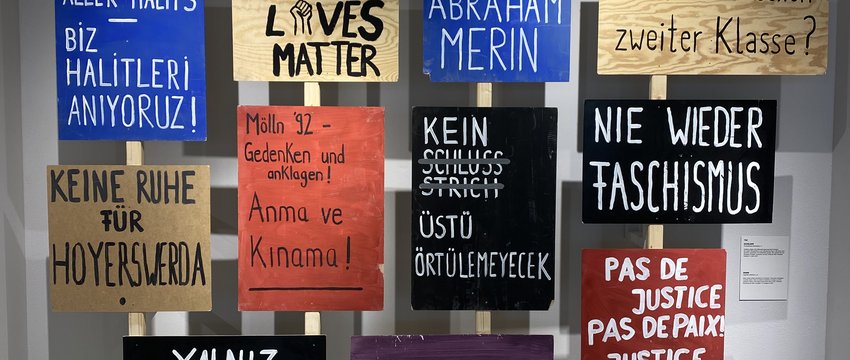 ALLER HALITS
—
BIZ
HALITLERI
ANIYORUZ!
LIVES
MATTER
ABRAHAM
MERIN
zweiter Klasse?
KEINE RUHE
FÜR
HOYERSWERDA
Mölln '92 -
Gedenken und
anklagen!
Anma ve
Kınama!
KEIN
SCHLUSS
STRICH
ÜSTÜ
ÖRTÜLEMEYECEK
NIE WIEDER
FASCHISMUS
PAS DE
JUSTICE
PAS DE PAIX!
JUSTICE
YALNIZ